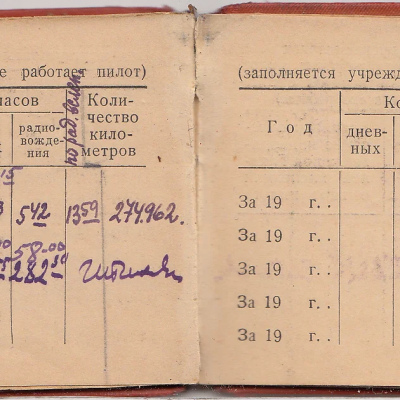 е работает пилот)
часов
радио-
вожде-
ния
Коли-
чество
кило-
метров
15
3 542 13 59 274.962.
58-00
282 30
(заполняется учрежд
Ко
Год
днев-
ных
За 19 г..
За 19 г..
За 19 г..
За 19 г..
За 19 г..